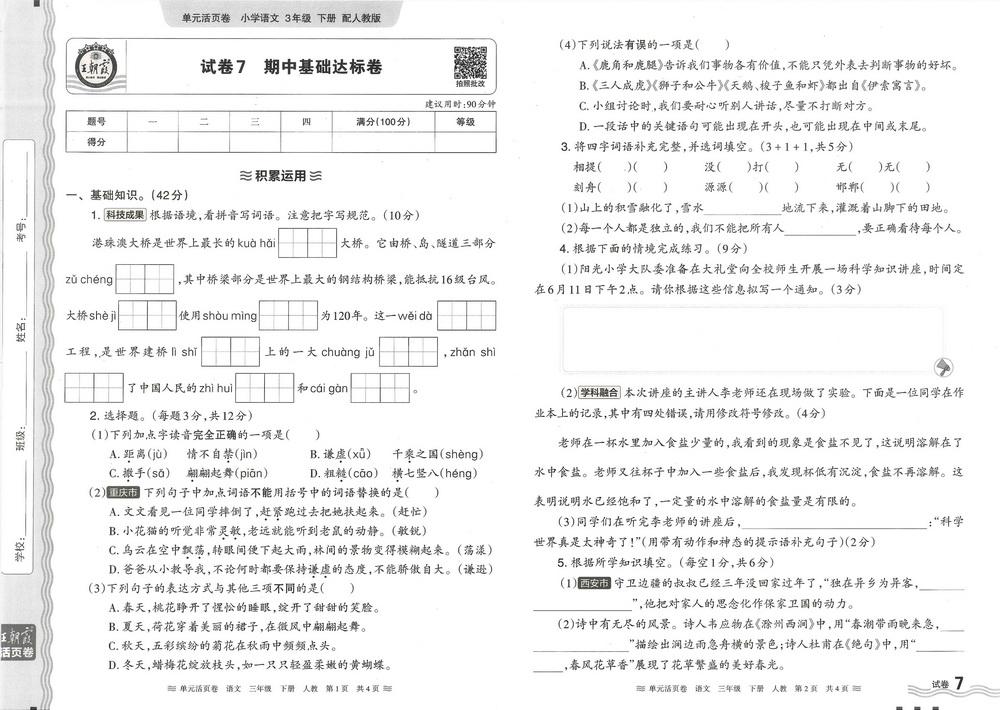 单元活页卷 小学语文 3年级 下册 配人教版
王朝霞
试卷7 期中基础达标卷
拍照批改
建议用时:90分钟
题号 一 二 三 四 满分(100分) 等级
得分
积累运用
一、基础知识。(42分)
1. 科技成果 根据语境,看拼音写词语。注意把字写规范。(10分)
港珠澳大桥是世界上最长的kuà hǎi 大桥。它由桥、岛、隧道三部分
zǔ chéng ,其中桥梁部分是世界上最大的钢结构桥梁,能抵抗16级台风。
大桥shè jì 使用shòu mìng 为120年。这一wěi dà
工程,是世界建桥lì shǐ 上的一大chuàng jǔ ,zhǎn shì
了中国人民的zhì huì 和cái gàn 。
2. 选择题。(每题3分,共12分)
(1)下列加点字读音完全正确的一项是( )
A. 距离(jù) 情不自禁(jìn) B. 谦虚(xǖ) 千乘之国(shèng)
C. 撒手(sā) 翩翩起舞(piān) D. 粗糙(cāo) 横七竖八(héng)
(2) 重庆市 下列句子中加点词语不能用括号中的词语替换的是( )
A. 文文看见一位同学摔倒了,赶紧跑过去把她扶起来。(赶忙)
B. 小花猫的听觉非常灵敏,老远就能听到老鼠的动静。(敏锐)
C. 乌云在空中飘荡,转眼间便下起大雨,林间的景物变得模糊起来。(荡漾)
D. 爸爸从小教导我,不论何时都要保持谦虚的态度,不能骄傲自大。(谦逊)
(3)下列句子的表达方式与其他三项不同的是( )
A. 春天,桃花睁开了惺忪的睡眼,绽开了甜甜的笑脸。
B. 夏天,荷花穿着美丽的裙子,在微风中翩翩起舞。
C. 秋天,五彩缤纷的菊花在秋雨中频频点头。
D. 冬天,蜡梅花绽放枝头,如一只只轻盈柔嫩的黄蝴蝶。
单元活页卷 语文 三年级 下册 人教 第1页 共4页
考号:
姓名:
班级:
学校:
王朝霞
活页卷
(4)下列说法有误的一项是( )
A.《鹿角和鹿腿》告诉我们事物各有价值,不能只凭外表去判断事物的好坏。
B.《三人成虎》《狮子和公牛》《天鹅、梭子鱼和虾》都出自《伊索寓言》。
C. 小组讨论时,我们要耐心听别人讲话,尽量不打断对方。
D. 一段话中的关键语句可能出现在开头,也可能出现在中间或末尾。
3. 将四字词语补充完整,并选词填空。(3+1+1,共5分)
相提( )( ) 没( )打( ) 无( )无( )
刻舟( )( ) 源源( )( ) 邯郸( )( )
(1)山上的积雪融化了,雪水 地流下来,灌溉着山脚下的田地。
(2)每一个人都是独立的,我们不能把所有人 ,要正确看待每个人。
4. 根据下面的情境完成练习。(9分)
(1)阳光小学大队委准备在大礼堂向全校师生开展一场科学知识讲座,时间定
在6月11日下午2点。请你根据这些信息拟写一个通知。(3分)
(2) 学科融合 本次讲座的主讲人李老师还在现场做了实验。下面是一位同学在作
业本上的记录,其中有四处错误,请用修改符号修改。(4分)
老师在一杯水里加入食盐少量的,我看到的现象是食盐不见了,这说明溶解在了
水中食盐。老师又往杯子中加入一些食盐后,我发现杯低有沉淀,食盐不再溶解。这
表明说明水已经饱和了,一定量的水中溶解的食盐量是有限的。
(3)同学们在听完李老师的讲座后, :“科学
世界真是太神奇了!”(用带有动作和神态的提示语补充句子)(2分)
5. 根据所学知识填空。(每空1分,共6分)
(1) 西安市 守卫边疆的叔叔已经三年没回家过年了,“独在异乡为异客,
”,他把对家人的思念化作保家卫国的动力。
(2)诗中有无尽的风景。诗人韦应物在《滁州西涧》中,用“春潮带雨晚来急,
”描绘出涧边雨急舟横的景色;诗人杜甫在《绝句》中,用“
,春风花草香”展现了花草繁盛的美好春光。
单元活页卷 语文 三年级 下册 人教 第2页 共4页
试卷 7